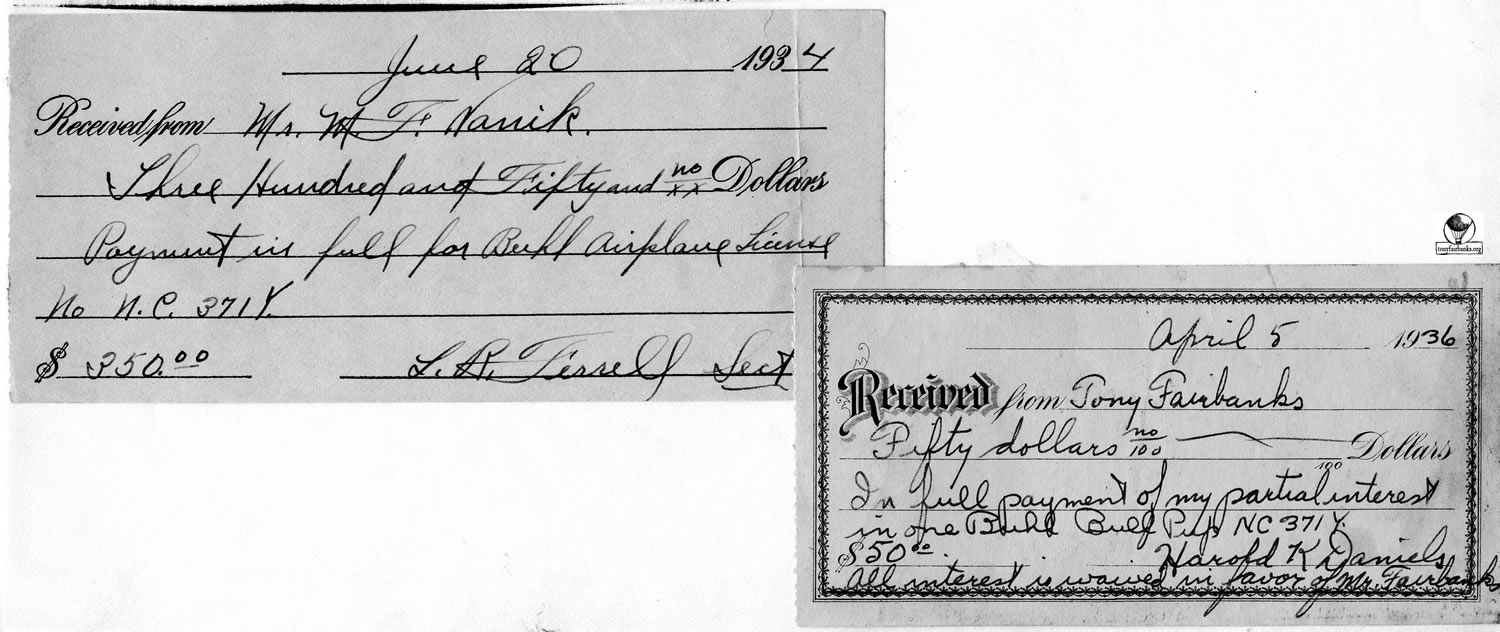 June 20 1934
Received from Mr. M. F. Vanik.
Three Hundred and Fifty and no/xx Dollars
Payment in full for Buhl Airplane License
No N.C. 371Y.
$ 350.00 L. R. Terrell Sect
tonyfairbanks.org
April 5 1936
Received from Tony Fairbanks
Fifty dollars no/100 Dollars
100
In full payment of my partial interest
in one Buhl Bull Pup NC 371Y.
$50.00. Harold K Daniels
All interest is waived in favor of Mr. Fairbanks